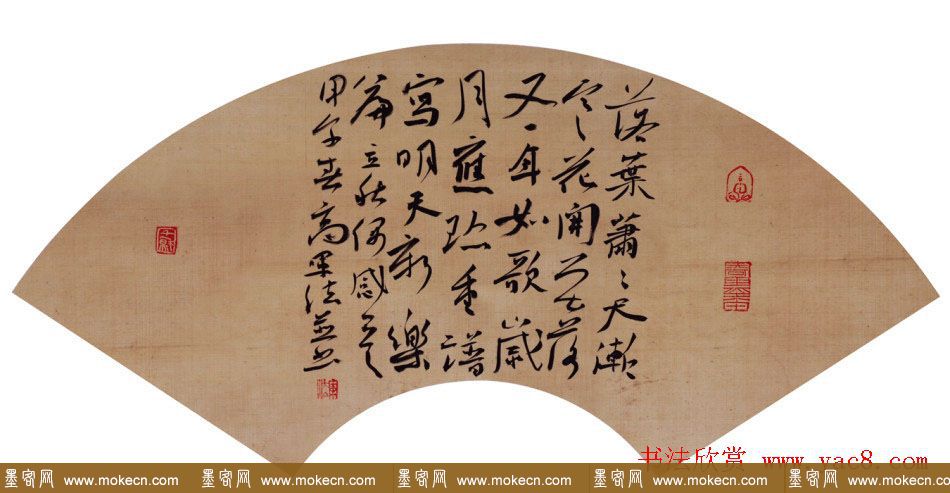 落葉蕭〻天漸
寒花開花落
又一年如歌歲
月應珍重譜
寫明天新樂
篇立秋偶感
甲午春高軍法並書
书法欣赏 www.yac8.com
墨客网 www.mokecn.com 墨客网 www.mokecn.com 墨客网 www.mokecn.com 墨客网 www.mokecn.com 墨客网 www.mokecn.com